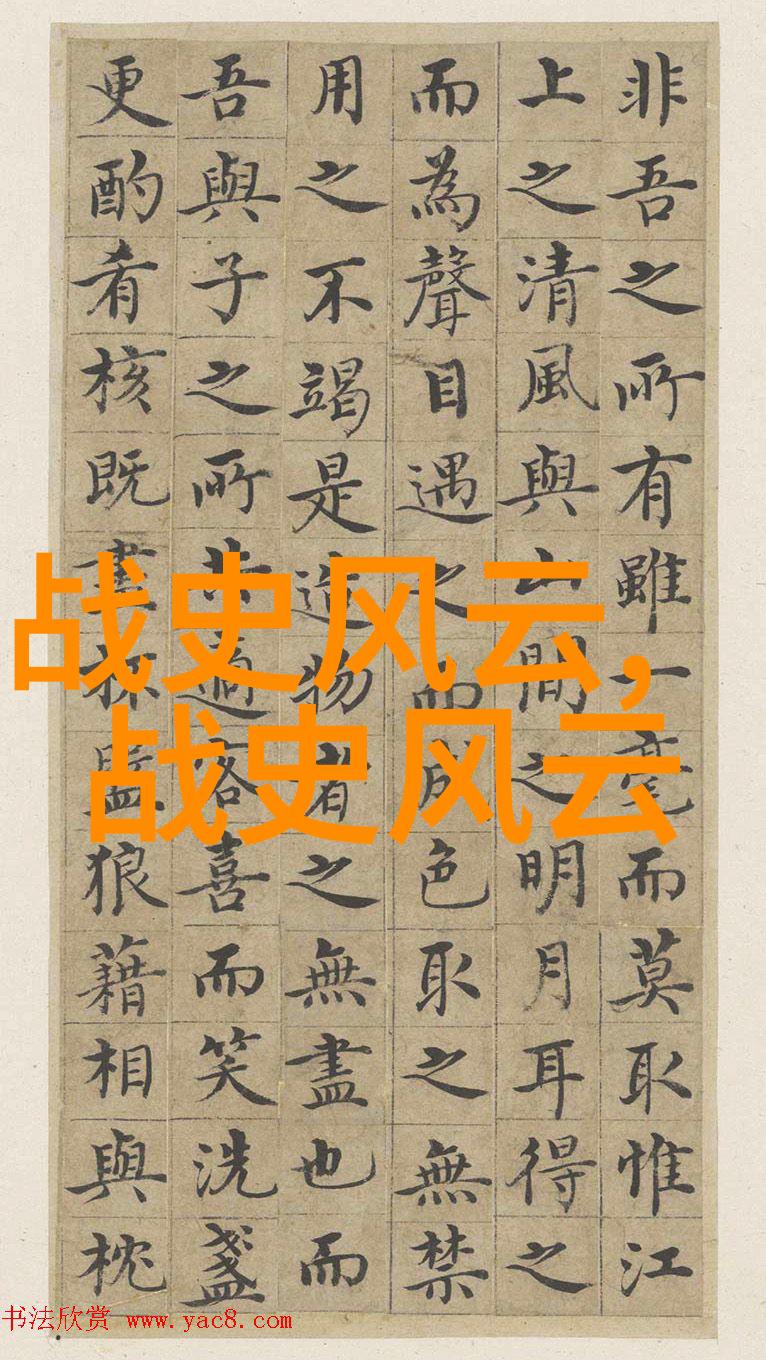 非吾之所有雖一毫而莫取惟江
上之清風與山間之明月耳得之
而為聲目遇之而成色取之無禁
用之不竭是造物者之無盡也而
吾與子之所共適客喜而笑洗盞
更酌肴核既盡杯盤狼藉相與枕
战史风云,
战史风云
书法欣赏 www.yac8.com